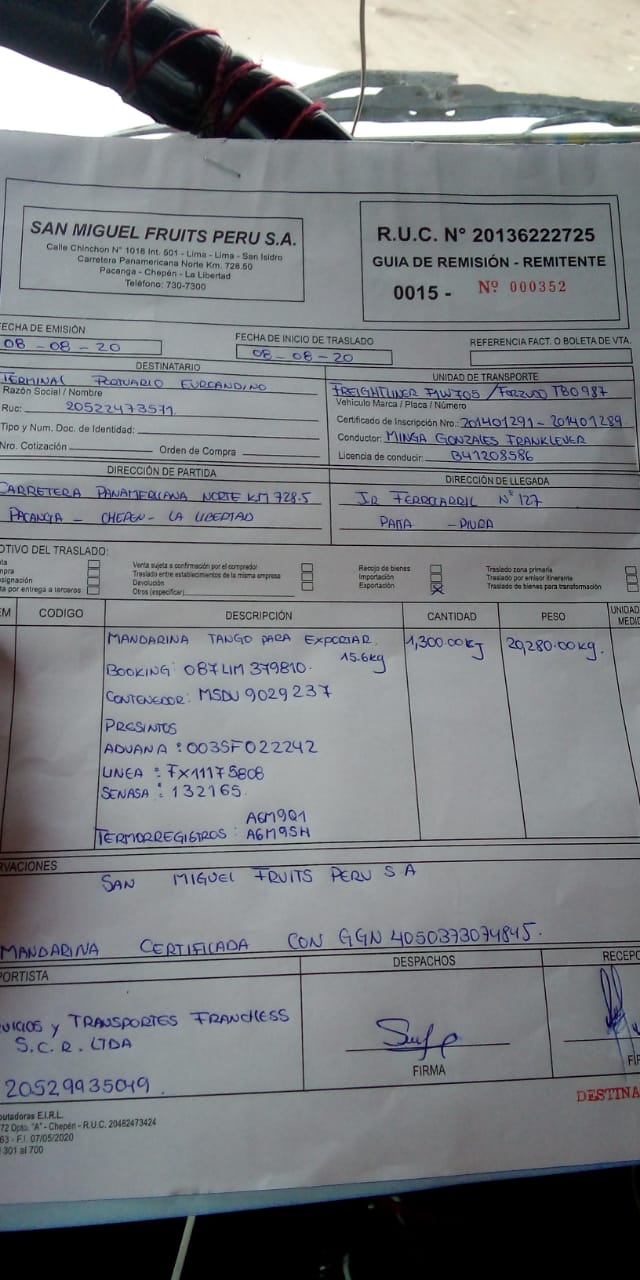 SAN MIGUEL FRUITS PERU S.A.
Calle Chinchon N° 1018 Int. 501 - Lima - Lima - San Isidro
Carretera Panamericana Norte Km. 728.50
Pacanga - Chepén - La Libertad
Teléfono: 730-7300
R.U.C. N° 20136222725
GUIA DE REMISIÓN - REMITENTE
0015 - Nº 000352
FECHA DE EMISIÓN
08 - 08 - 20
FECHA DE INICIO DE TRASLADO
08 - 08 - 20
REFERENCIA FACT. O BOLETA DE VTA.
DESTINATARIO
TERMINAL PORTUARIO EUROANDINO
Razón Social / Nombre
Ruc: 20522473571
Tipo y Num. Doc. de Identidad:
Nro. Cotización Orden de Compra
UNIDAD DE TRANSPORTE
FREIGHTLINER P1W705 / FORZUDO TBO987
Vehículo Marca / Placa / Número
Certificado de Inscripción Nro.: 201401291 - 201401289
Conductor: MINGA GONZALES FRANKLEVER
Licencia de conducir: B41208586
DIRECCIÓN DE PARTIDA
CARRETERA PANAMERICANA NORTE KM 728.5
PACANGA - CHEPEN - LA LIBERTAD
DIRECCIÓN DE LLEGADA
JR FERROCARRIL N° 127
PAITA - PIURA
OTIVO DEL TRASLADO:
ta
mpra
nsignación
ta por entrega a terceros
Venta sujeta a confirmación por el comprador
Traslado entre establecimientos de la misma empresa
Devolución
Otros (especificar)
Recojo de bienes
Importación
Exportación X
Traslado zona primaria
Traslado por emisor itinerante
Traslado de bienes para transformación
EM CODIGO DESCRIPCIÓN CANTIDAD PESO UNIDAD
MEDI
MANDARINA TANGO PARA EXPORTAR. 1,300.00KJ 20,280.00kg.
15.6kg
BOOKING: 087LIM379810.
CONTENEDOR: MSDU 9029237
PRESINTOS
ADUANA : 003SF022242
LINEA : FX11175808
SENASA : 132165.
A6M9Q1
TERMORREGISTROS : A6M9SH
RVACIONES
SAN MIGUEL FRUITS PERU S A
MANDARINA CERTIFICADA CON GGN 4050373074845.
PORTISTA
DESPACHOS
RECEPC
VICIOS Y TRANSPORTES FRANCHESS
S.C.R. LTDA
20529935049.
FIRMA
FIR
DESTINA
putadoras E.I.R.L.
72 Dpto. "A" - Chepén - R.U.C. 20482473424
63 - F.I. 07/05/2020
301 al 700